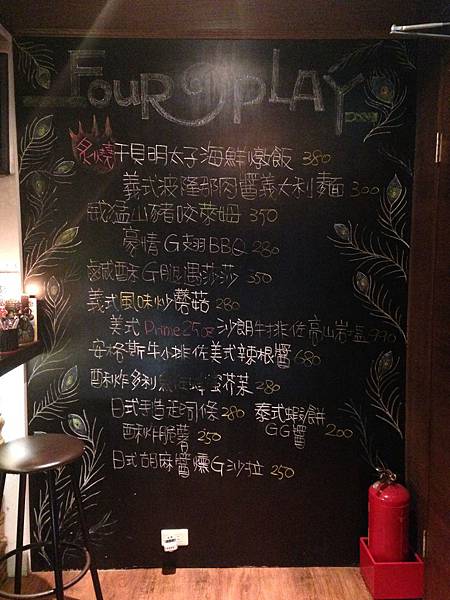 FOUR PLAY
炙燒干貝明太子海鮮燉飯 380
義式波隆那肉醬義大利麵 300
威猛山豬咬萊姆 350
豪情G翅BBQ 280
鹹酥G腿遇莎莎 350
義式風味炒蘑菇 280
美式Prime 25oz沙朗牛排佐高山岩鹽 990
安格斯牛小排佐美式辣根醬 680
酥炸多利魚佐蜂蜜芥茉 280
日式手造起司條 280 泰式蝦餅
酥炸脆薯 250 GG醬 200
日式胡麻醬燻G沙拉 250